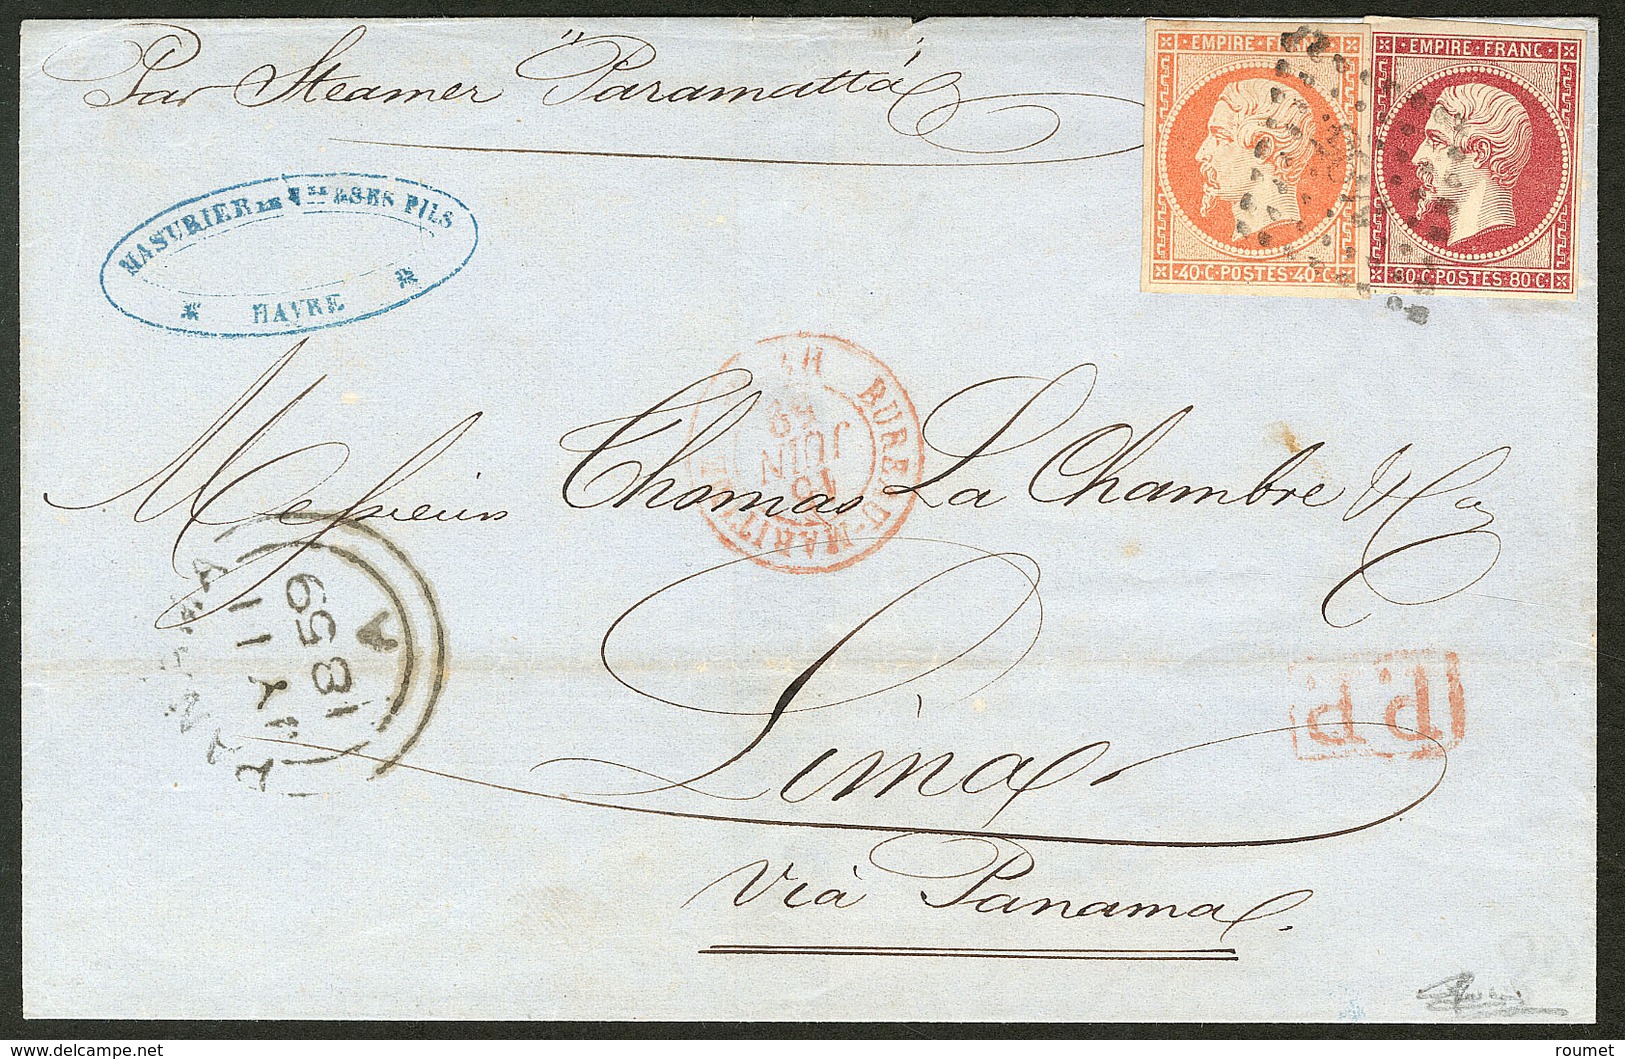 Par Steamer "Paramatta"
EMPIRE FRANC
40·C·POSTES·40·C
EMPIRE·FRANC·
80·C·POSTES·80·C
MASURIER LE Jne & SES FILS
HAVRE
BUREAU-MARITIME
15
JUIN
59
Messieurs Thomas La Chambre & Co
PANAMA
JY 11
1859
A
P.P.
Lima
Via Panama
delcampe.net
roumet